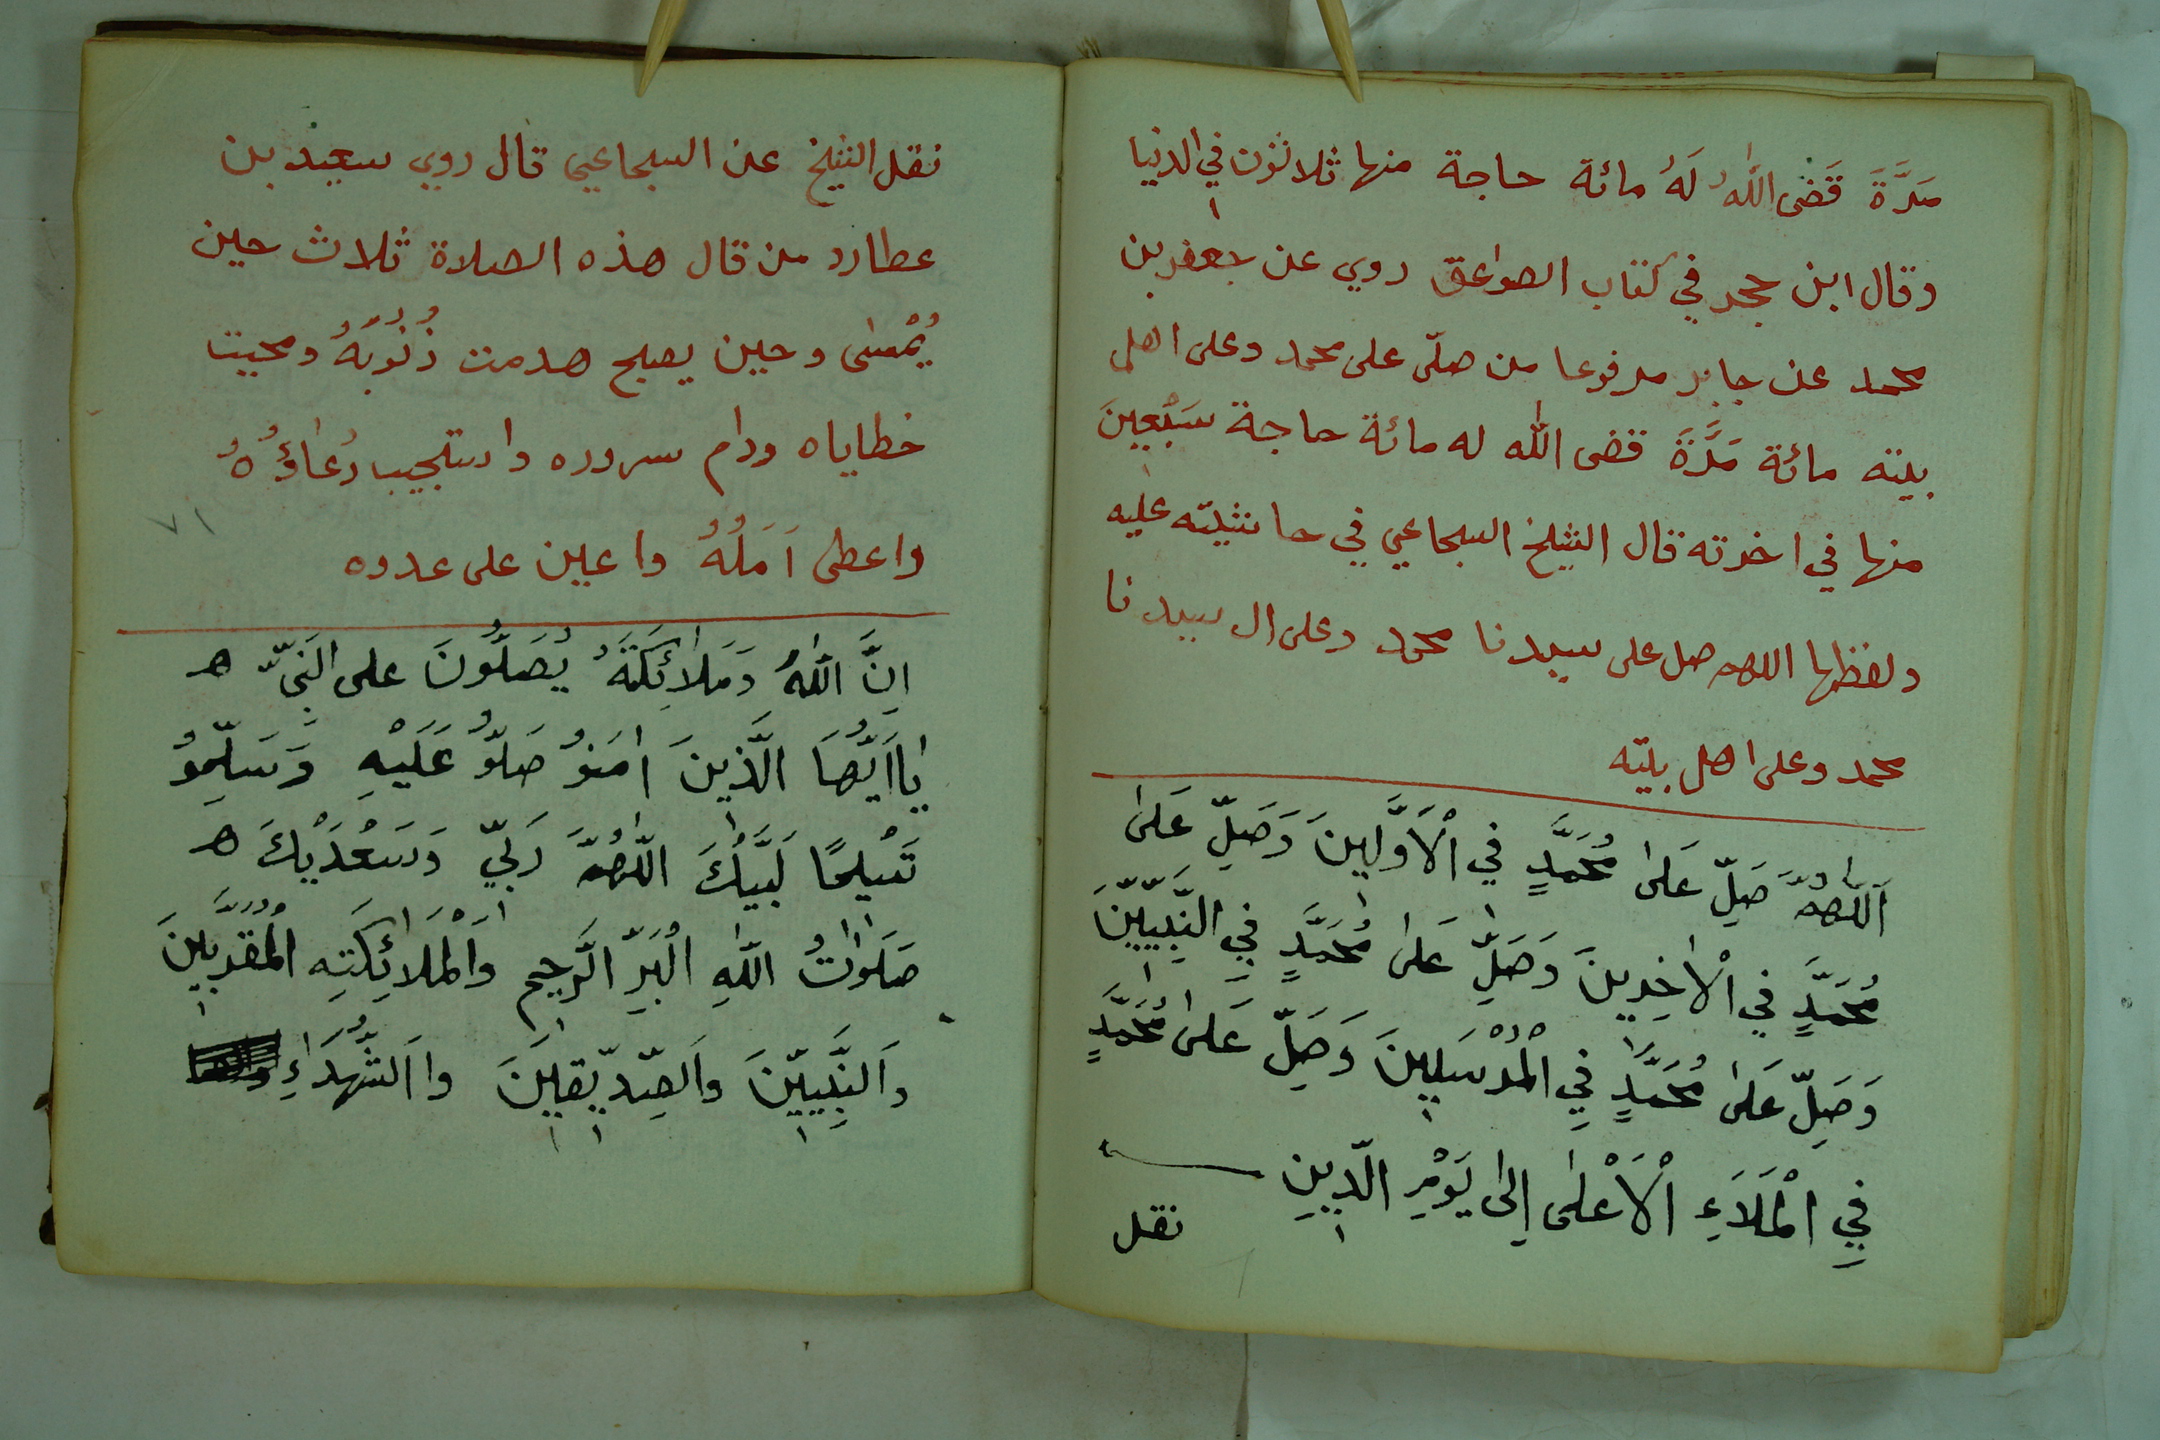 مَرَّةً قَضَى اللّٰهُ لَهُ مائة حاجة منها ثلاثون في الدنيا
وقال ابن حجر في كتاب الصواعق روي عن جعفر بن
محمد عن جابر مرفوعا من صلّى على محمد وعلى اهلى
بيته مائة مَرَّةً قضى الله له مائة حاجة سَبْعِينَ
منها في اخرته قال الشيخ السجاعي في حاشيته عليه
ولفظها اللهم صل على سيدنا محمد وعلى ال سيدنا
محمد وعلى اهل بيته
اَللّٰهُمَّ صَلِّ عَلىٰ مُحَمَّدٍ في الْاَوَّلِينَ وَصَلِّ عَلىٰ
مُحَمَّدٍ في الْاٰخِرِينَ وَصَلِّ عَلىٰ مُحَمَّدٍ فِي النَّبِيِّينَ
وَصَلِّ عَلىٰ مُحَمَّدٍ فِي الْمُرْسَلِينَ وَصَلِّ عَلىٰ مُحَمَّدٍ
فِي الْمَلَاَءِ الْاَعْلىٰ اِلىٰ يَوْمِ الدِّينِ
نقل
نقل الشيخ عن السجاعي قال روي سعيد بن
عطارد من قال هذه الصلاة ثلاث حين
يُمْسٰى وحين يصبح هدمت ذُنُوبَهُ ومحيت
خطاياه ودام سروره واستجيب دُعاؤُهُ
٧١
واعطى اَمَلُهُ واعين على عدوه
اِنَّ اللّٰهَ وَمَلاٰئِكَتَهُ يُصَلُّونَ على النَبِيِّ ه
يٰااَيُّهَا الَّذِينَ اٰمَنوُ صَلّوُ عَلَيْهِ وَسَلِّموُ
تَسْليمًا لَبَّيْكَ اللّٰهُمَّ رَبّي وَسَعْدَيْكَ ه
صَلَوٰاتُ اللّٰهِ الْبَرِّ الرَّحِيمِ وَالْمَلاٰئِكَتِهِ الْمُقَرَّبِينَ
وَالنَّبِيِّينَ وَالصِّدِّيقِينَ وااَلشُّهَدَاءِ